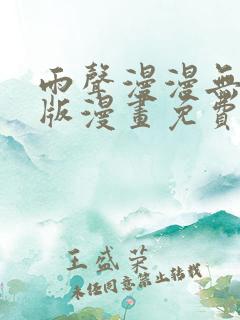 雨聲漫漫無
版漫畫免費
王盛荣
未经同意禁止转载